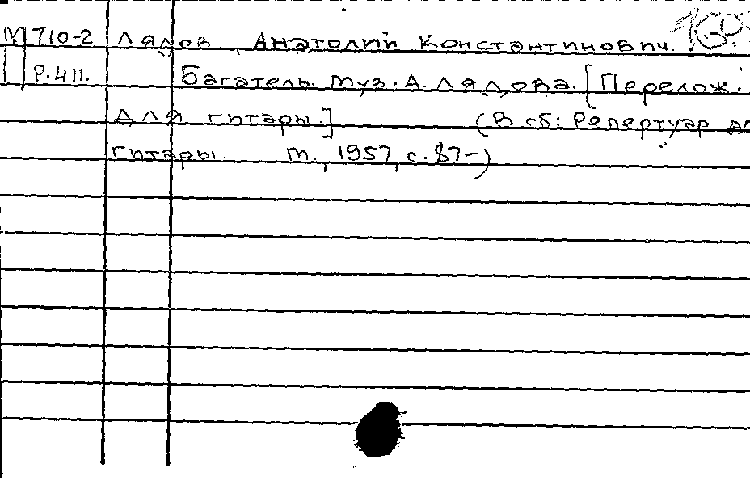 М 710-2 Лядов, Анатолий Константинович.
Р.411. Багатель. Муз. А. Лядова. [Перелож.
для гитары.] (В сб: Репертуар дл
гитары. М., 1957, с. 87-)